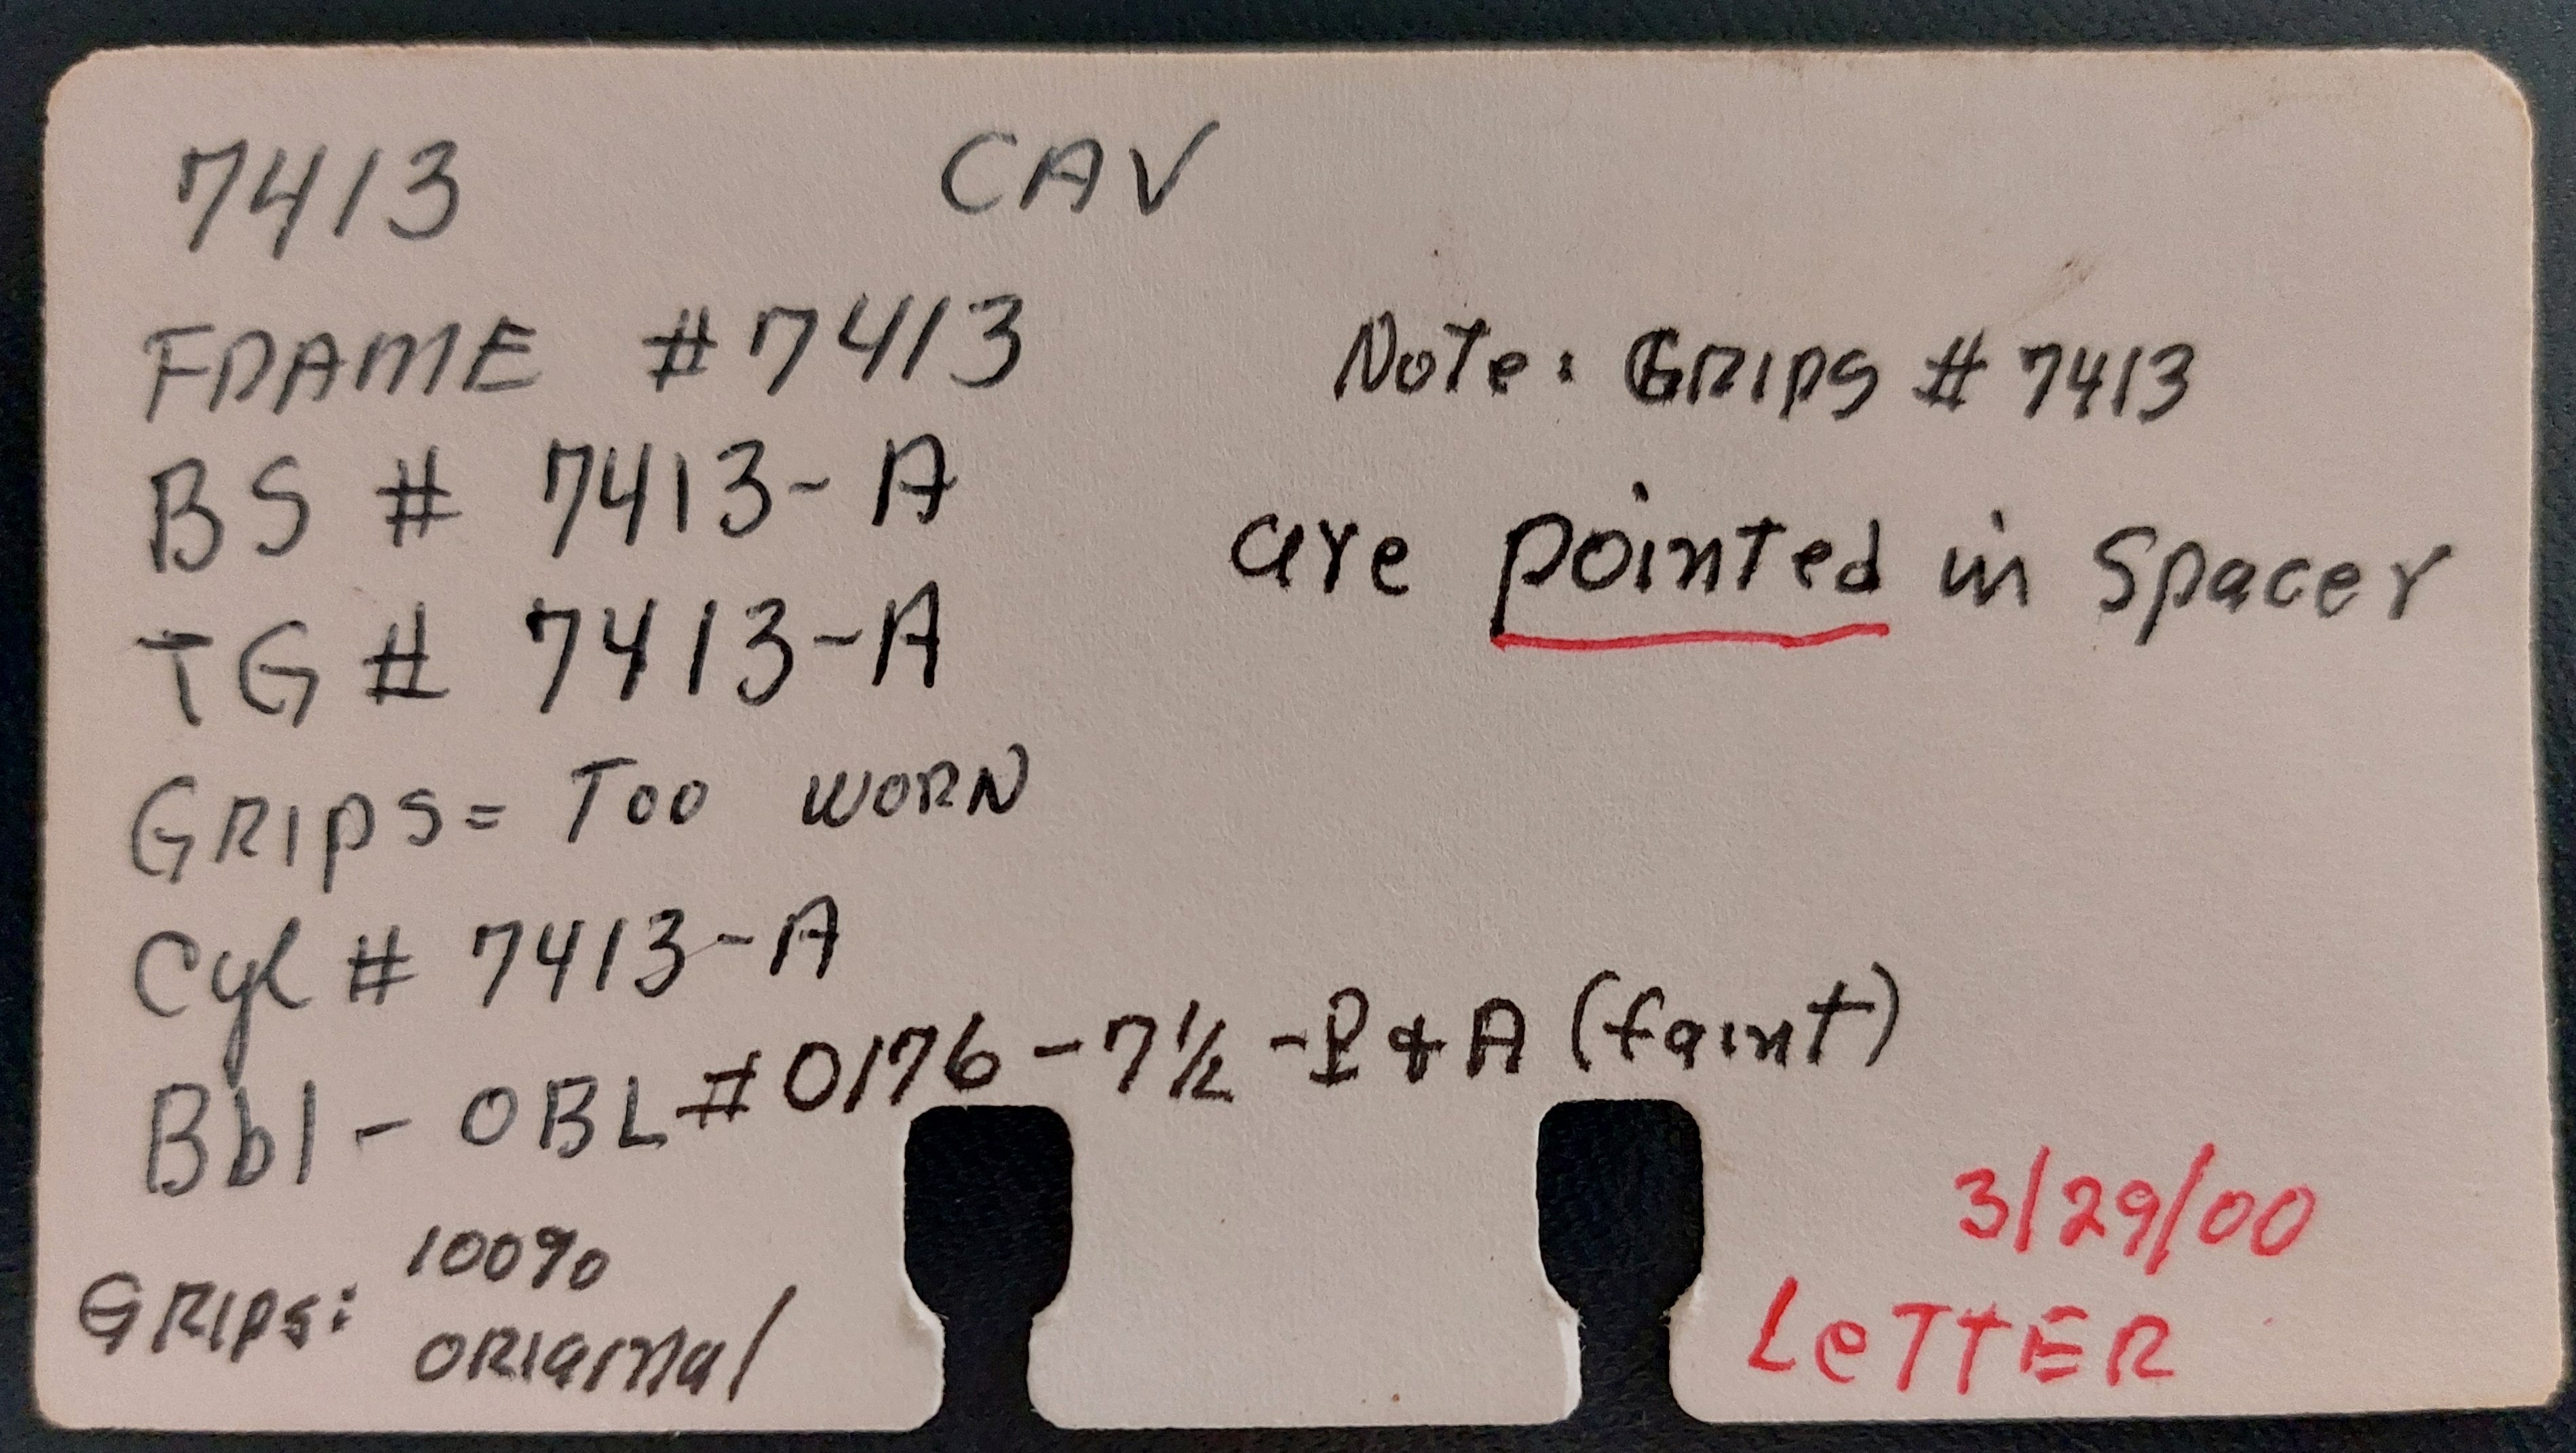 7413 CAV
FRAME #7413
BS # 7413-A
TG # 7413-A
GRIPS = TOO WORN
Cyl # 7413-A
Bbl - OBL #0176 - 7½ - P & A (faint)
GRIPS: 100%
ORIGINAL
Note: GRIPS # 7413
are pointed in Spacer
3/29/00
LeTTER